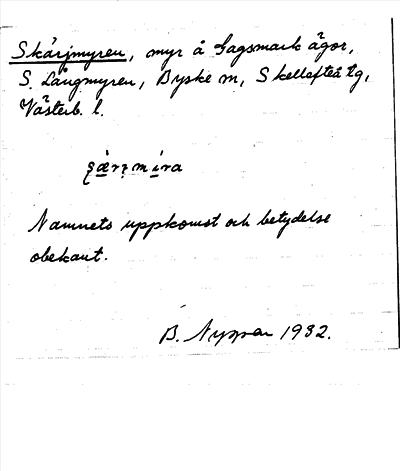 Skärjmyren, myr å Gagsmark ägor,
S. Långmyren, Byske sn, Skellefteå tg,
Västerb. l.
Namnets uppkomst och betydelse
obekant.
B. 1932.